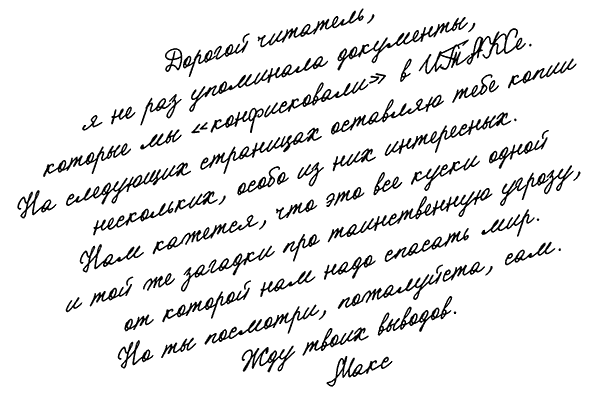 Дорогой читатель,
я не раз упоминала документы,
которые мы «конфисковали» в ИТАКСе.
На следующих страницах оставляю тебе копии
нескольких, особо из них интересных.
Нам кажется, что это все куски одной
и той же загадки про таинственную угрозу,
от которой нам надо спасать мир.
Но ты посмотри, пожалуйста, сам.
Жду твоих выводов.
Макс